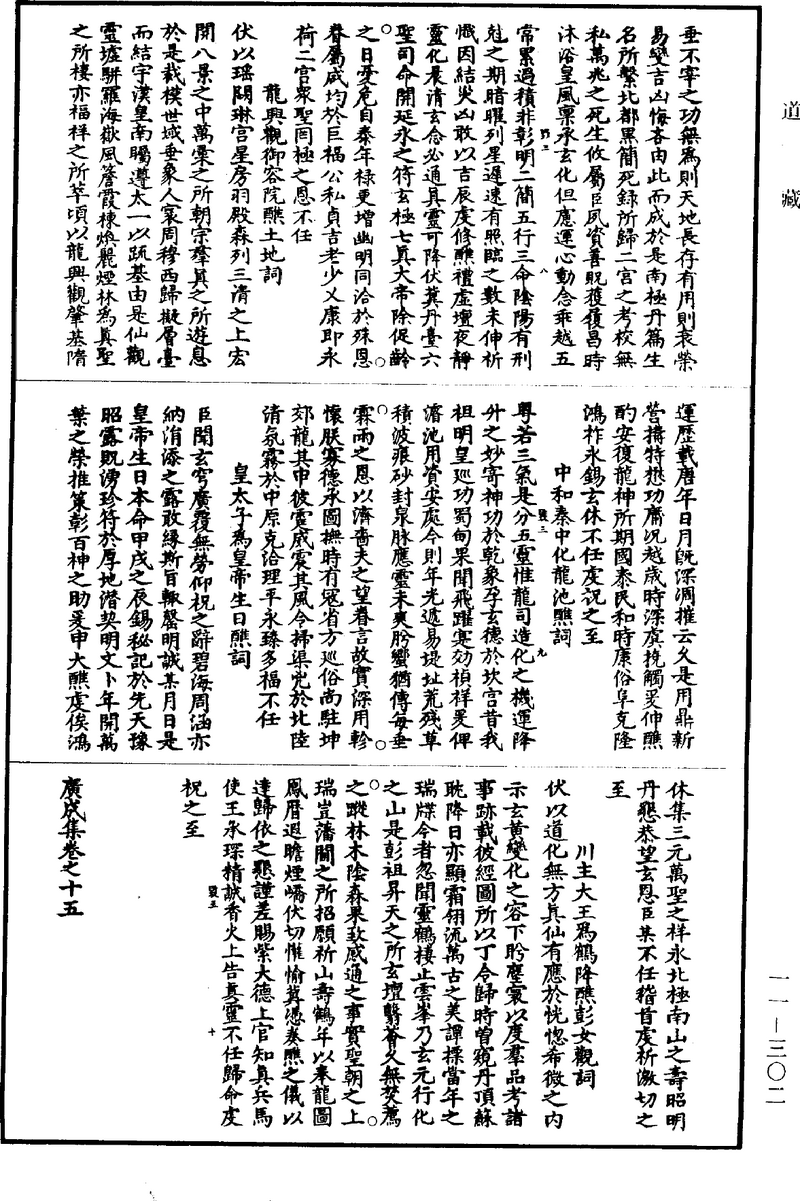 道藏
垂不宰之功無為則天地長存有用則衰榮
易變吉凶悔吝由此而成於是南極丹篇生
名所繫北都黑簡死錄所歸二宮之考校無
私萬兆之死生攸屬臣夙資善貺獲履昌時
沐浴皇風稟承玄化但慮運心動念乖越五
常累過積非彰明二簡五行三命陰陽有刑
尅之期暗曜列星遲速有照臨之數未伸祈
懺因結災凶敢以吉辰虔修醮禮虛壇夜靜
靈化晨清玄念必通真靈可降伏冀丹臺六
聖司命開延永之符玄極七真大帝除促齡
之日憂危自泰年祿更增幽明同洽於殊恩
眷屬咸均於巨福公私貞吉老少乂康即永
荷二宮衆聖罔極之恩不任
龍興觀御容院醮土地詞
伏以瑤闕琳宮星房羽殿森列三清之上宏
開八景之中萬靈之所朝宗羣真之所遊息
於是裁模世域垂象人寰周穆西歸擬層臺
而結宇漢皇南矚遵太一以疏基由是仙觀
靈墟駢羅海嶽風簷霞棟煥麗煙林為真聖
之所棲亦福祥之所萃頃以龍興觀肇基隋
運歷載唐年日月旣深凋摧云久是用鼎新
營搆特懋功庸況越歲時深虞挽觸爰伸醮
酌安復龍神所期國泰民和時康俗阜克隆
鴻祚永錫玄休不任虔祝之至
中和秦中化龍池醮詞
粵若三氣是分五靈惟龍司造化之機運降
升之妙寄神功於乾象孕玄德於坎宮昔我
祖明皇巡功蜀甸果聞飛躍寔効禎祥爰俾
濬池用資安處今則年光遞易堤址荒殘草
積波漲砂封泉脉應靈未爽肹蠁猶傳每垂
霖雨之恩以濟嗇夫之望眷言故實深用軫
懷朕寡德承圖撫時有寇省方巡俗尚駐坤
郊龍其申彼靈威震其風令掃渠兇於北陸
清氛霧於中原克洽理平永臻多福不任
皇太子為皇帝生日醮詞
臣聞玄穹廣覆無勞仰祝之辭碧海周涵亦
納涓滴之露敢緣斯旨輒罄明誠某月日是
皇帝生日本命甲戌之辰錫祕記於先天豫
昭露貺湧珍符於厚地潛契明文卜年開萬
葉之榮推策彰百神之助爰申大醮虔俟鴻
休集三元萬聖之祥永北極南山之壽昭明
丹懇恭望玄恩臣某不任稽首虔祈激切之
至
川主大王為鶴降醮彭女觀詞
伏以道化無方真仙有應於恍惚希微之內
示玄黃變化之容下眄塵寰以度羣品考諸
事跡載彼經圖所以丁令歸時曾窺丹頂蘇
躭降日亦顯霜翎流萬古之美譚標當年之
瑞牒今者忽聞靈鶴棲止雲峯乃玄元行化
之山是彭祖昇天之所玄壇翳薈久無焚薦
之蹤林木陰森果致感通之事實聖朝之上
瑞豈藩閫之所招願祈山壽鶴年以奉龍圖
鳳曆遐瞻煙嶠伏切惟愉冀憑奏醮之儀以
達歸依之懇謹差賜紫大德上官知真兵馬
使王承琛精誠香火上告真靈不任歸命虔
祝之至
廣成集卷之十五
一一—三〇二